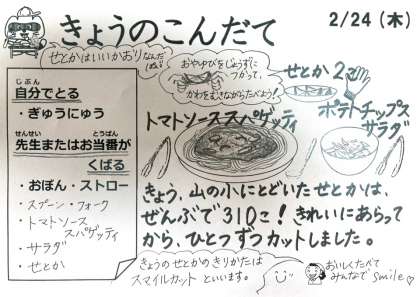 きょうのこんだて
2/24(木)
せとかはいいかおりなんだね!
おやゆびをじょうずに
つかって、
かわをむきながらたべよう!
せとか 2こ
トマトソーススパゲッティ
ポテトチップス
サラダ
じぶん
自分でとる
・ぎゅうにゅう
せんせい とうばん
先生またはお当番が
くばる
・おぼん・ストロー
・スプーン・フォーク
・トマトソース
スパゲッティ
・サラダ
・せとか
きょう、山の小にとどいたせとかは、
ぜんぶで310こ!きれいにあらって
から、ひとつずつカットしました。
きょうのせとかのきりかたは
スマイルカット といいます。
おいしくたべて
みんなで smile♡